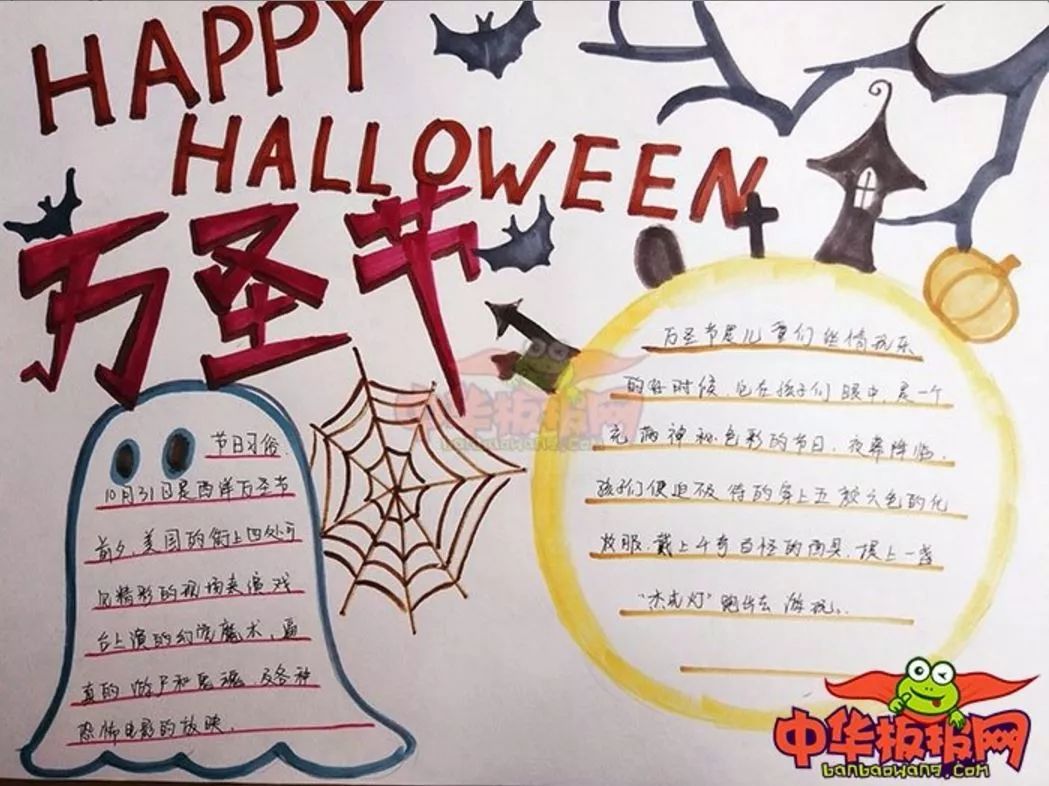 HAPPY
HALLOWEEN
万圣节
节日习俗
10月31日是西洋万圣节
前夕,美国的街上四处可
见精彩的现场表演戏
台上演的幻觉魔术,逼
真的游尸和恶魂,及各种
恐怖电影的放映.
万圣节是儿童们纵情玩乐
的好时候.它在孩子们眼中,是一个
充满神秘色彩的节日.夜幕降临.
孩子们便迫不及待的穿上五颜六色的化
妆服.戴上千奇百怪的面具.提上一盏
"杰克灯"跑出去游玩.
中华板报网
banbaowang.com
中华板报网
banbaowang.com